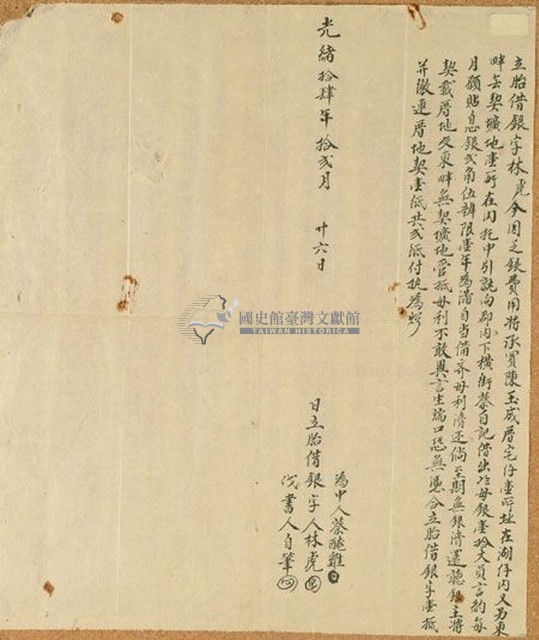 立胎借銀字林虎今因乏銀費用將承買陳玉成厝宅仔壹所址在湖仔內又另東
畔無契壙地壹所在內托中引就向郡內下橫街蔡自記借出母銀壹拾大員言約每
月願貼息銀弍角伍辦限壹年為滿自當備齊母利清還倘至期無銀清還聽銀主將
契載厝地及東畔無契壙地管抵母利不敢異言生端口恐無憑合立胎借銀字壹紙
并繳連厝地契壹紙共弍紙付執為炤
光緒拾肆年拾弍月 廿六日
為中人蔡
日立胎借銀字人林虎
代書人自筆
國史館臺灣文獻館
TAIWAN HISTORICA